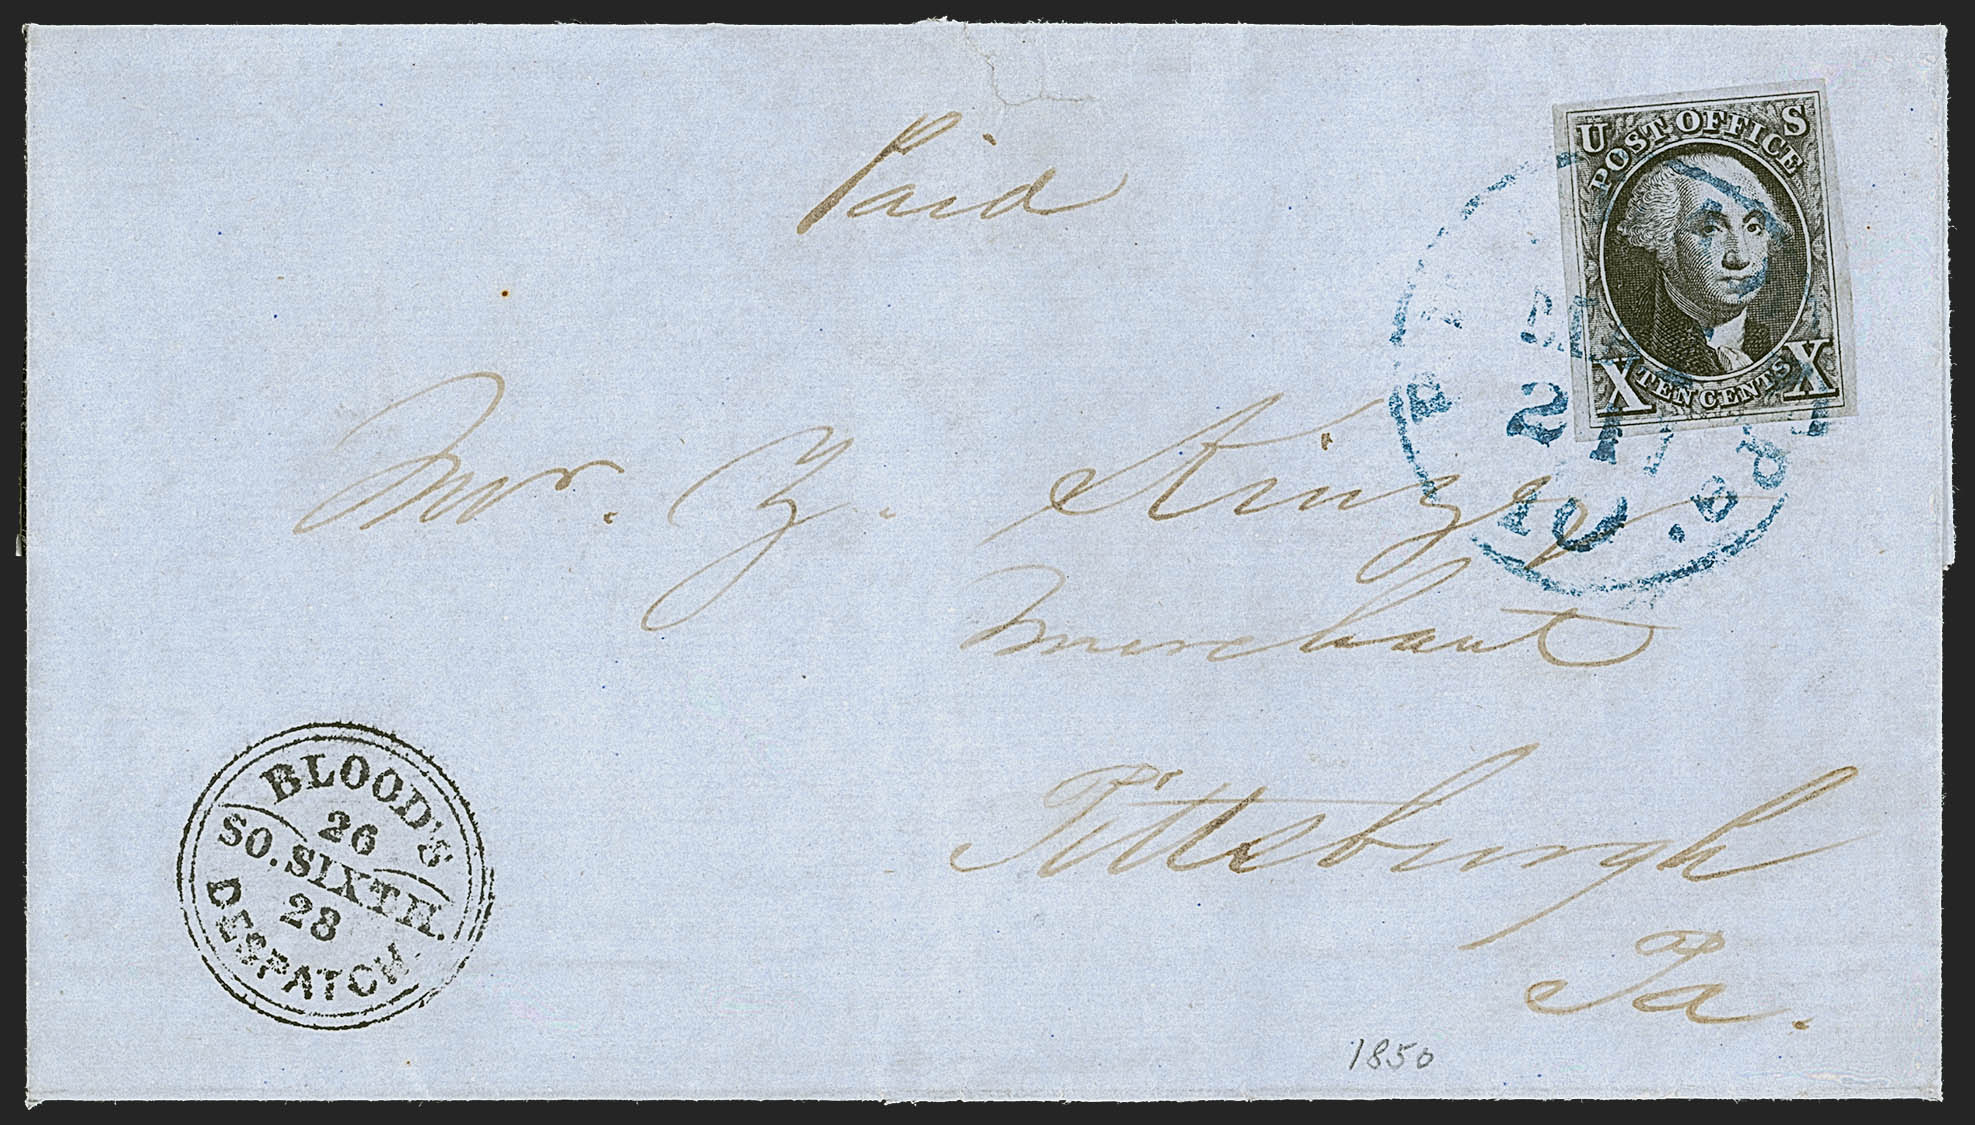 Paid
U S
POST OFFICE
X TEN CENTS X
10
Pa.
Mr. Z. King
Merchant
Pittsburgh
Pa.
BLOOD'S
26
SO. SIXTH.
28
DESPATCH.
1850